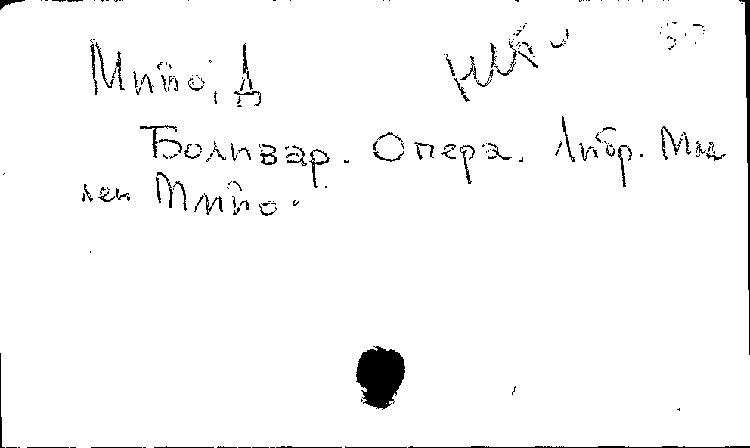 Мийо, Д
Боливар. Опера. Либр. Мад
лен Мийо.